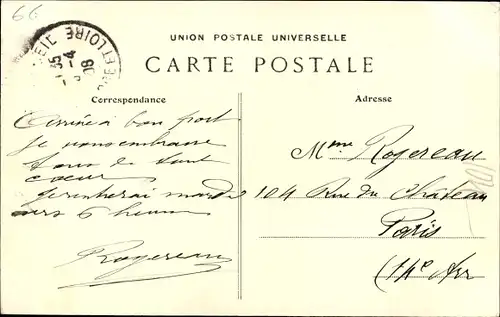 66
UNION POSTALE UNIVERSELLE
CARTE POSTALE
ET LOIRE
-4
08
Correspondance
Arrivée à bon port
Je vous embrasse
tous de tout
coeur
je rentrerai mardi
vers 6 heures
Rogereau
Adresse
Mme Rogereau
104 Rue du Château
Paris
14e Arr